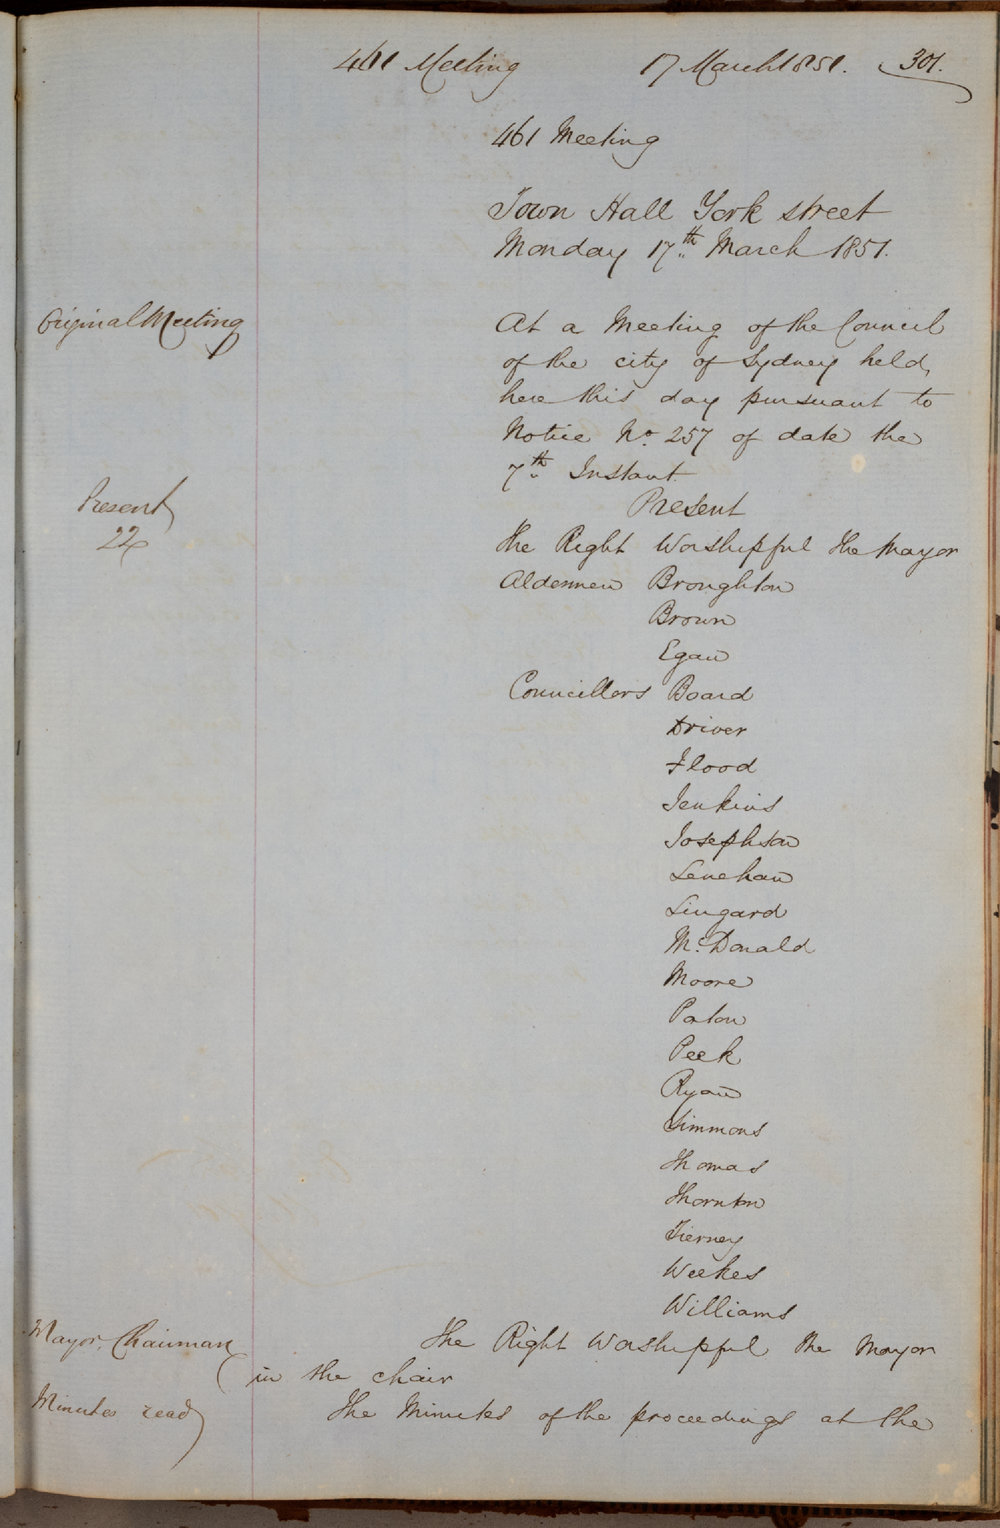 461 Meeting 17 March 1851. 301.
461 Meeting
Town Hall York street
Monday 17th March 1851.
Original Meeting
At a Meeting of the Council
of the city of Sydney held,
here this day pursuant to
Notice No. 257 of date the
7th Instant
Present
22
Present
The Right Worshipful the Mayor
Aldermen Broughton
Brown
Egan
Councillors Board
Driver
Flood
Jenkins
Josephson
Lenehan
Lingard
McDonald
Moore
Paton
Peek
Ryan
Simmons
Thomas
Thornton
Tierney
Weekes
Williams
Mayor, Chairman
The Right Worshipful the Mayor
in the chair
Minutes read
The Minutes of the proceedings at the